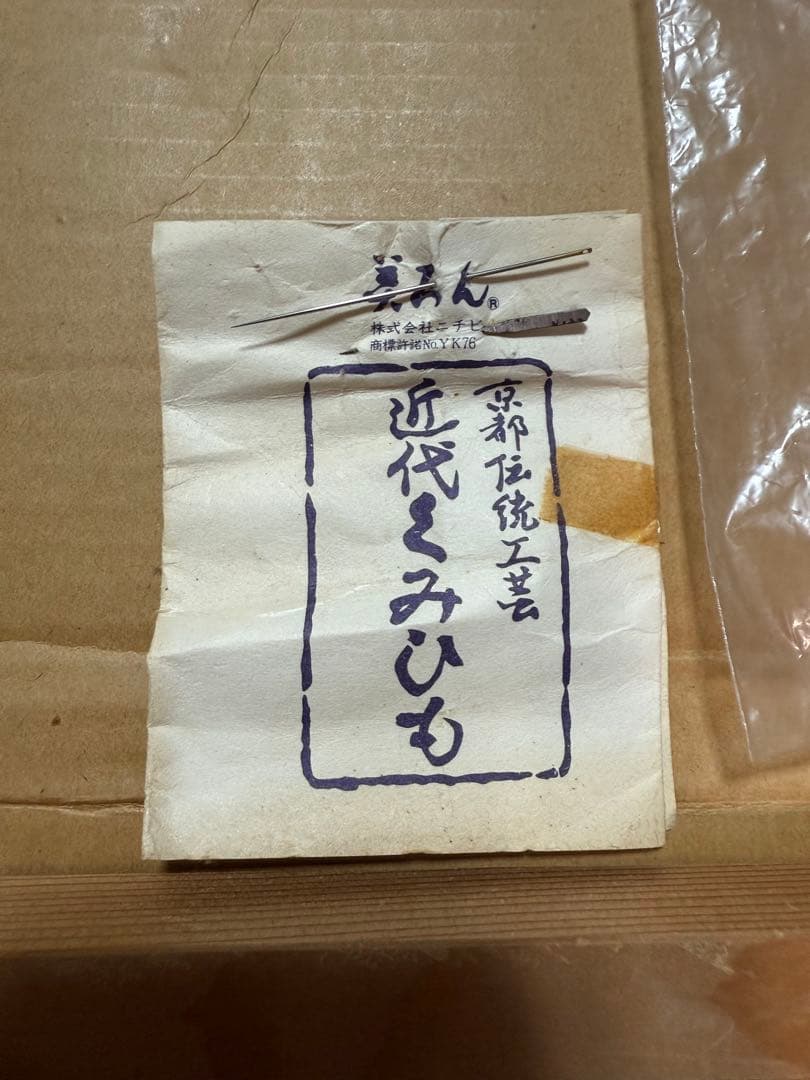 美あん®
株式会社ニチビ
商標許諾No.YK76
京都伝統工芸
近代くみひも